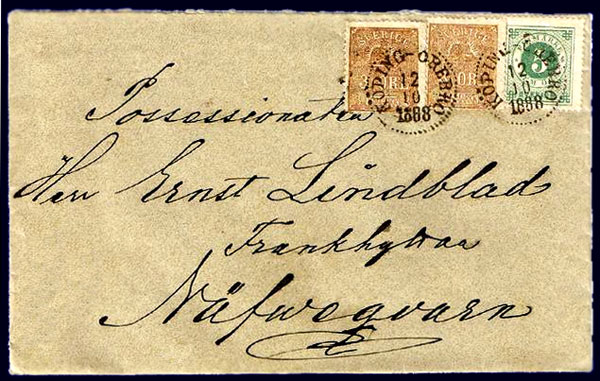 SVERIGE
3 ÖRE
KÖPING-ÖREBRO
12
10
1888
5
KÖPING-ÖREBRO
12
10
1888
Possessionaten
Herr Ernst Lindblad
Frankhyttan
Näfweqvarn